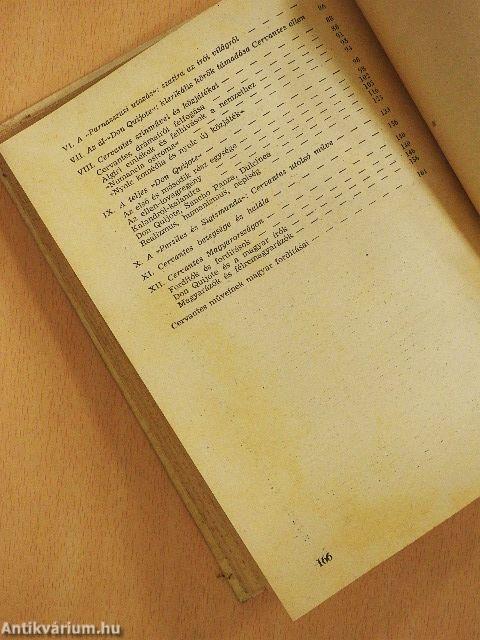 VI. A »Parnasszusi utazás«: szatíra az írói világról — — — 86
VII. Az ál-»Don Quijote«: klerikális körök támadása Cervantes ellen 88
VIII. Cervantes színművei és közjátékai — — — 88
Cervantes drámaírói felfogása — — — 91
Algíri emlékek és felhívások a nemzethez — — — 93
»Numancia ostroma« — — — 94
»Nyolc komédia és nyolc új közjáték« — — — 96
IX. A teljes »Don Quijote« — — — 98
Az első és második rész egysége — — — 98
Az ellen-lovagregény — — — 102
Kalandról-kalandra — — — 105
Don Quijote, Sancho Panza, Dulcinea — — — 116
Realizmus, humanizmus, népiség — — — 125
X. A »Persiles és Sigismunda«: Cervantes utolsó műve — — — 133
XI. Cervantes betegsége és halála — — — 140
XII. Cervantes Magyarországon — — — 146
Fordítók és fordítások — — — 146
Don Quijote és a magyar írók — — — 150
Magyarázók és félremagyarázók — — — 156
Cervantes műveinek magyar fordításai — — — 161
166
Antikvárium.hu